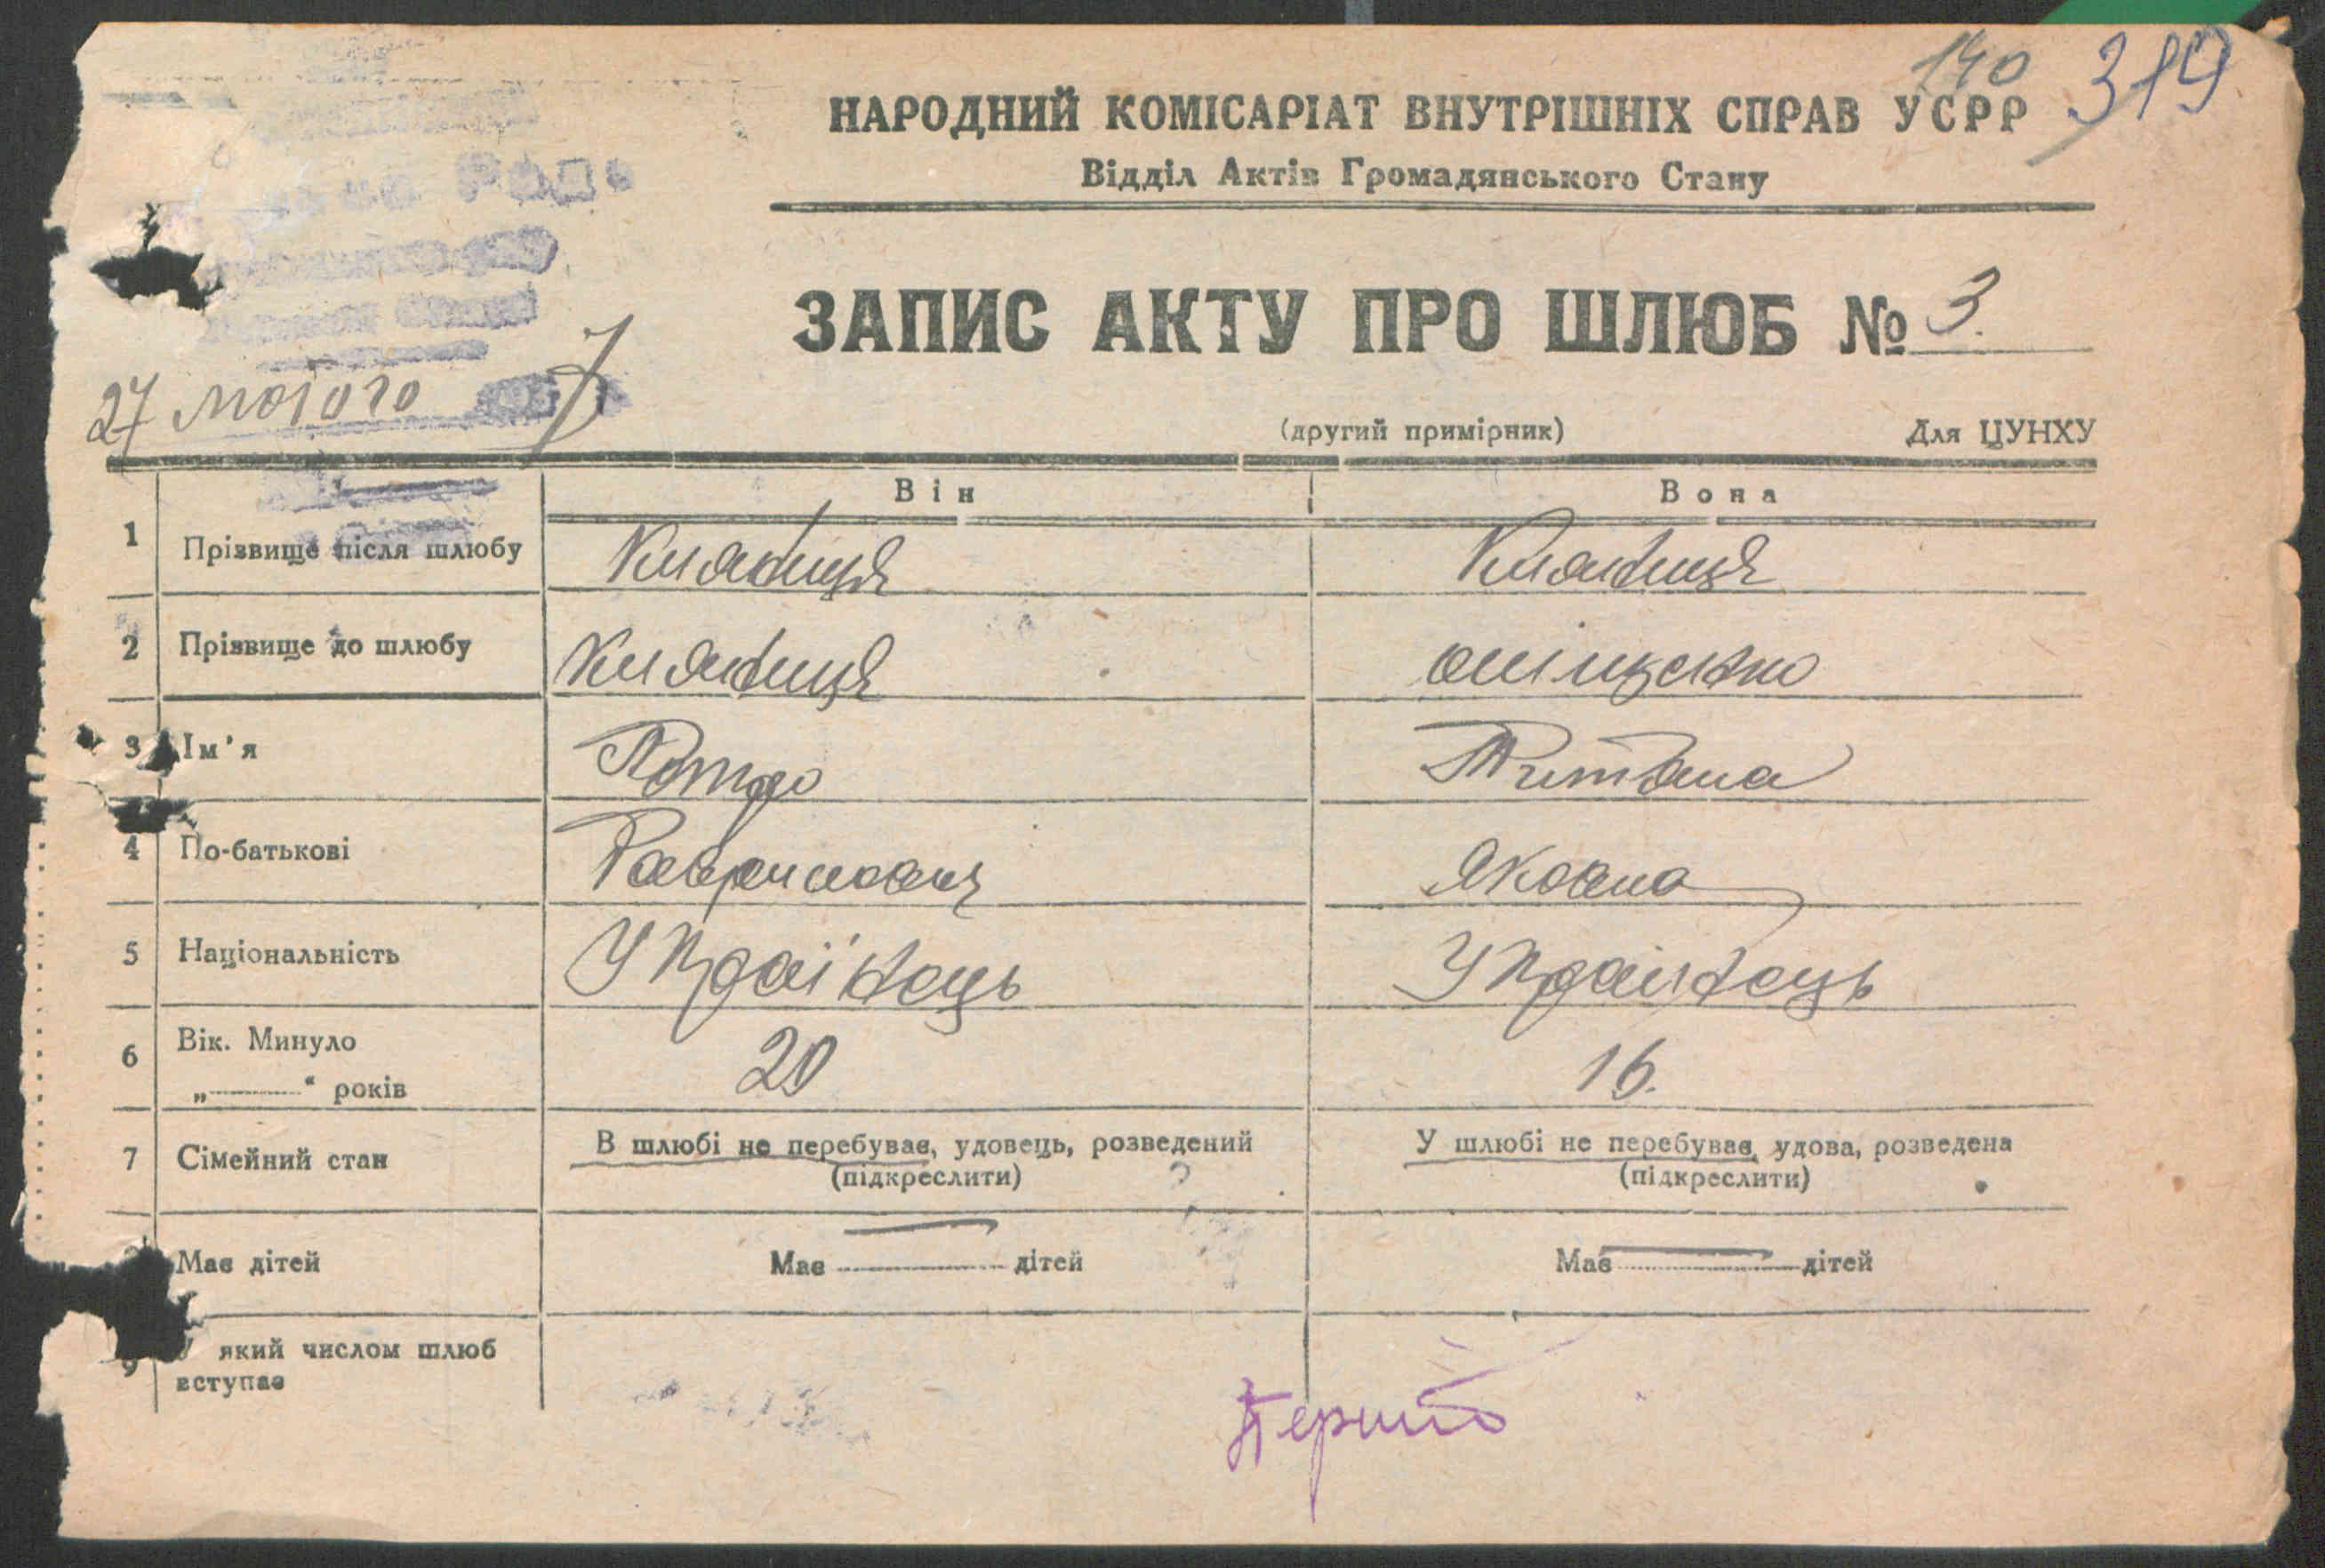 140 319
НАРОДНИЙ КОМІСАРІАТ ВНУТРІШНІХ СПРАВ УСРР
Відділ Актів Громадянського Стану
ЗАПИС АКТУ ПРО ШЛЮБ № 3.
27 лютого 7
(другий примірник) Для ЦУНХУ
Він Вона
1 Прізвище після шлюбу Княжиця Княжиця
2 Прізвище до шлюбу Княжиця
3 Ім'я Петро Титяна
4 По-батькові Гаврилович Яковна
5 Національність Українець Українець
6 Вік. Минуло
„ “ років 20 16.
7 Сімейний стан В шлюбі не перебуває, удовець, розведений У шлюбі не перебуває, удова, розведена
(підкреслити) (підкреслити)
Має дітей Має — дітей Має — дітей
9 У який числом шлюб
вступає